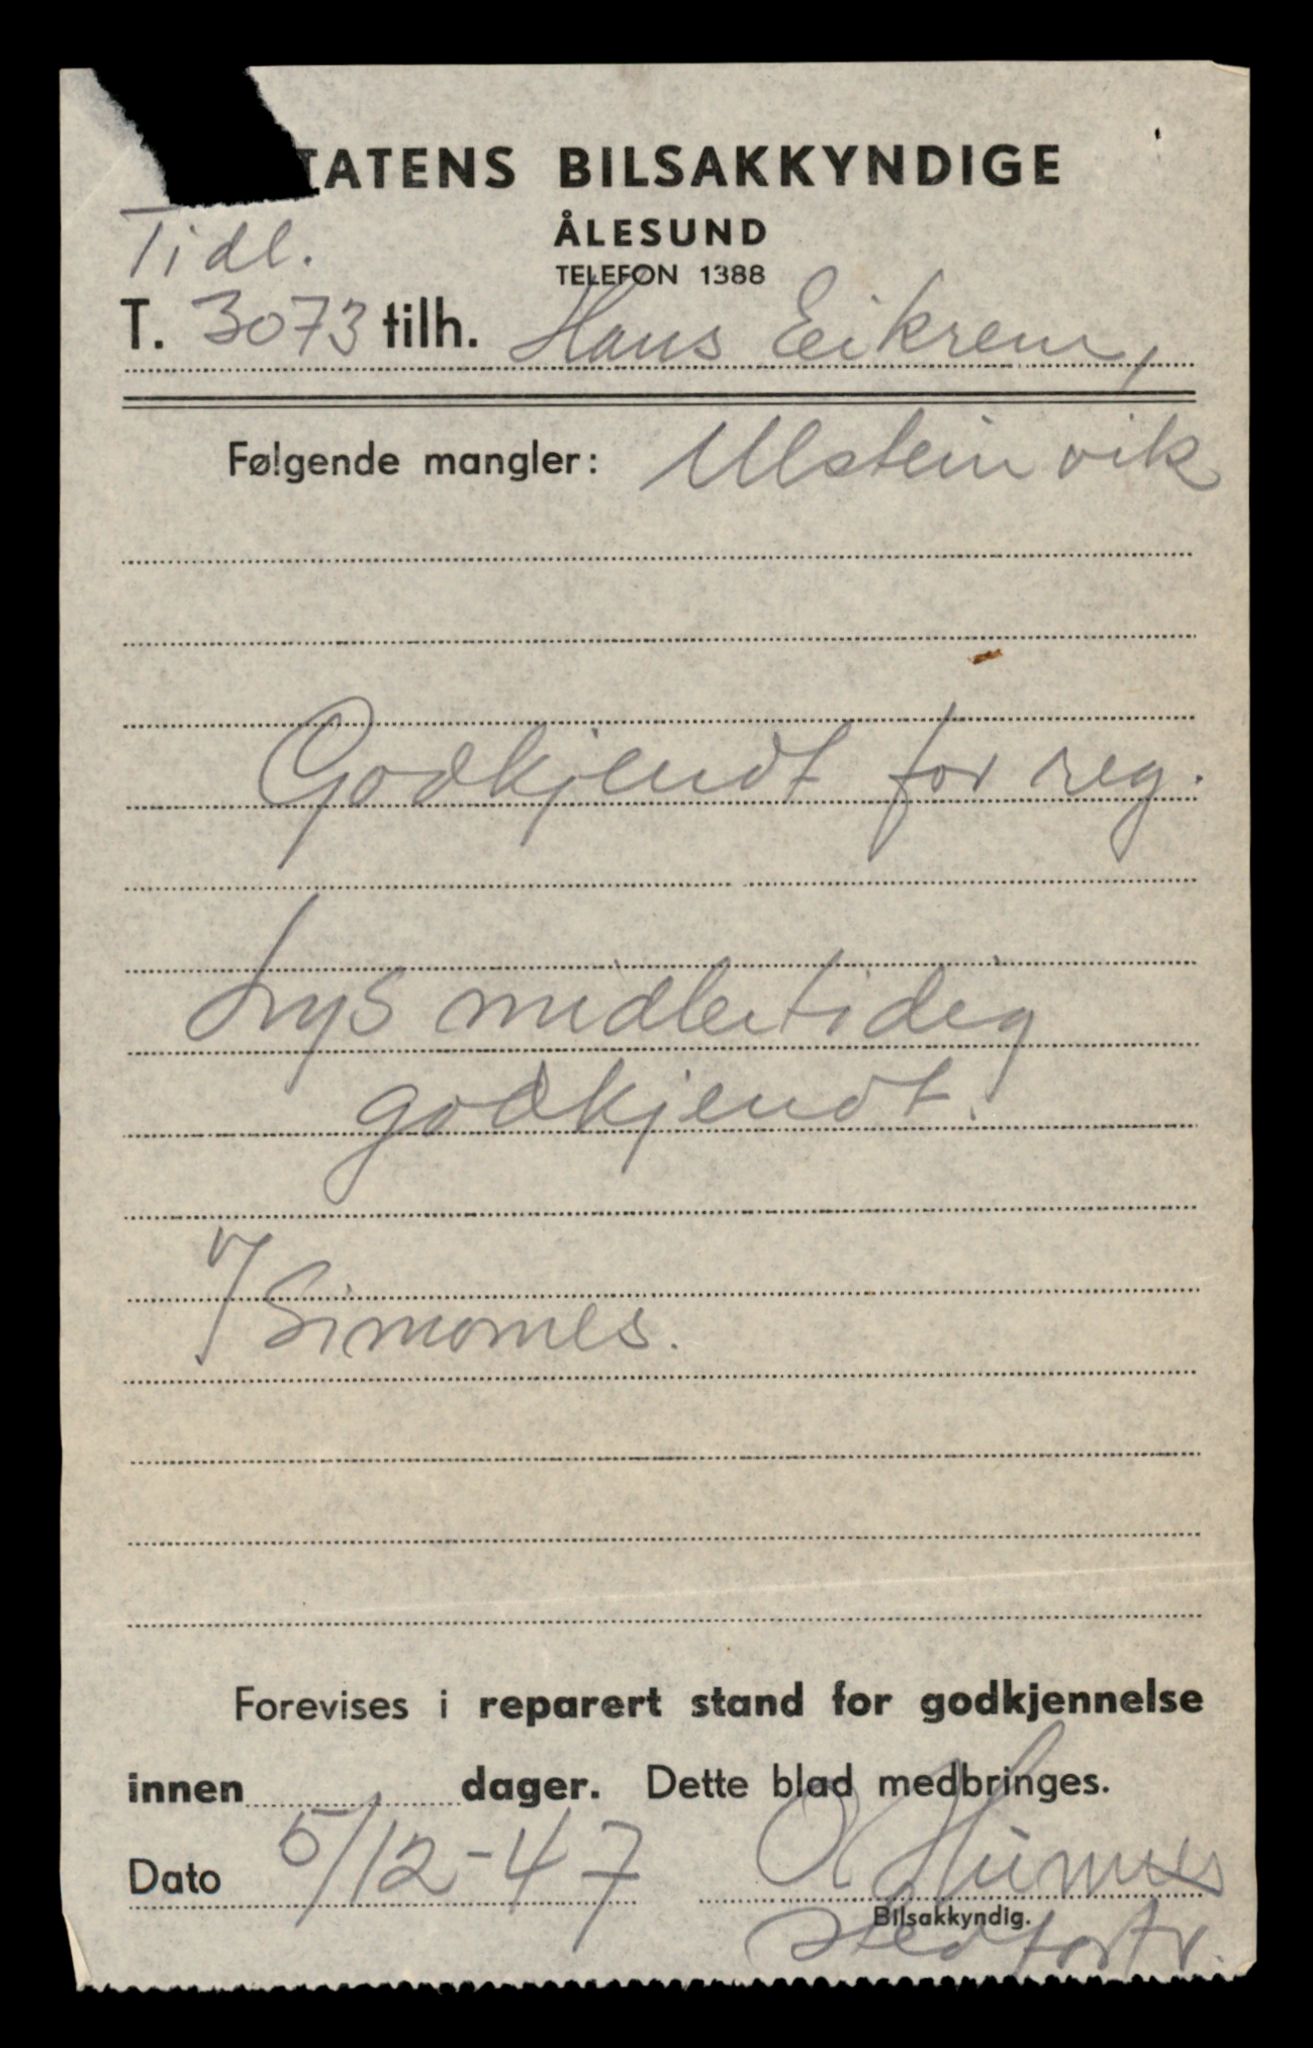 TATENS BILSAKKYNDIGE
ÅLESUND
TELEFON 1388
Tidl.
T. 3073 tilh. Hans Eikrem,
Følgende mangler: Ulsteinvik
Godkjendt for reg.
Lys midlertidig
godkjendt.
V/Simones.
Forevises i reparert stand for godkjennelse
innen dager. Dette blad medbringes.
Dato 5/12-47
Bilsakkyndig.
stedfortr.